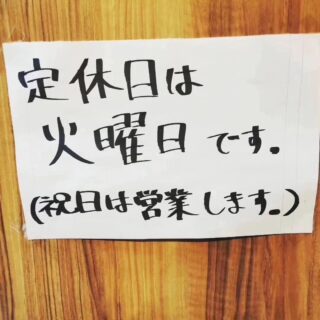 定休日は
火曜日です。
(祝日は営業します。)